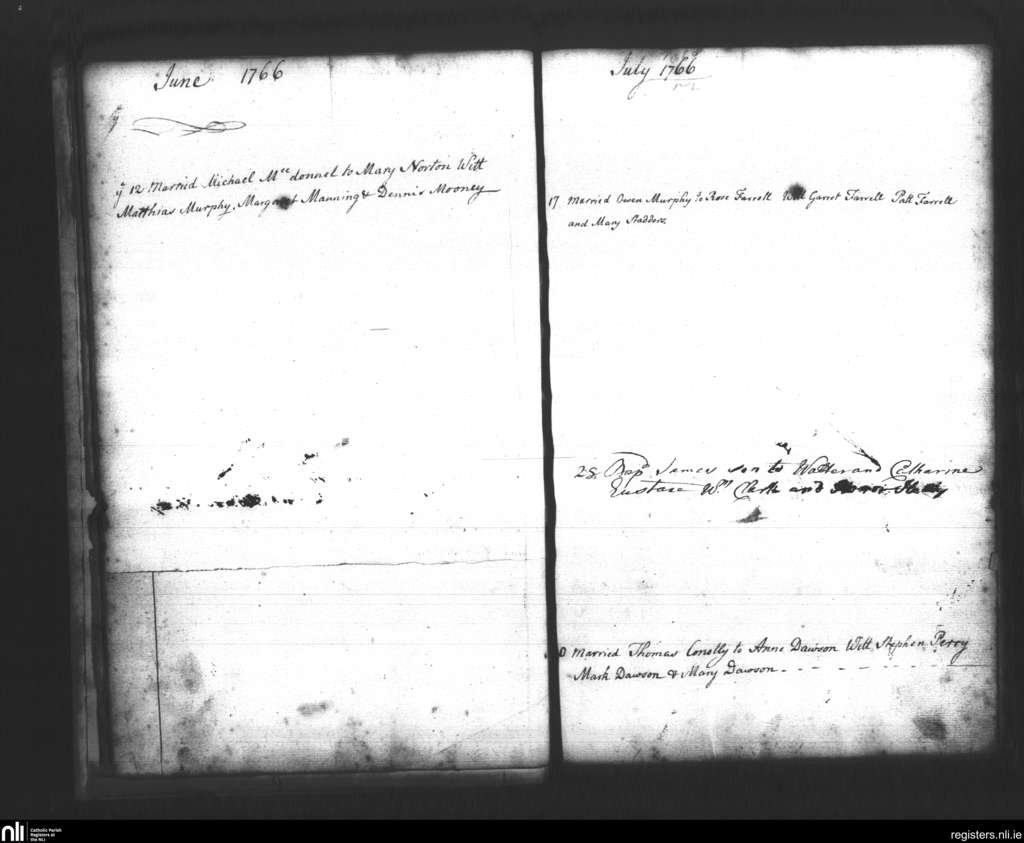 June 1766
ÿ
ÿ 12 Married Michael Mcc donnel to Mary Norton Witt
Matthias Murphy, Margaret Manning & Dennis Mooney
July 1766
17 Married Owen Murphy to Rose Farrell Witt Garret Farrell Patt Farrell
and Mary
28 Bapd James son to Walter and Catharine
Eustace Wm and
0 Married Thomas Conolly to Anne Dawson Witt Stephen Percy
Mark Dawson & Mary Dawson
nli
Catholic Parish
Registers at
the NLI
registers.nli.ie